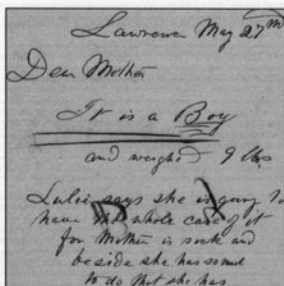 Lawrence May 27th
Dear Mother
It is a Boy
and weighed 9 lbs
Lulie says she is going to
have the whole care of it
for Mother is sick and
beside she has some
to do that she has